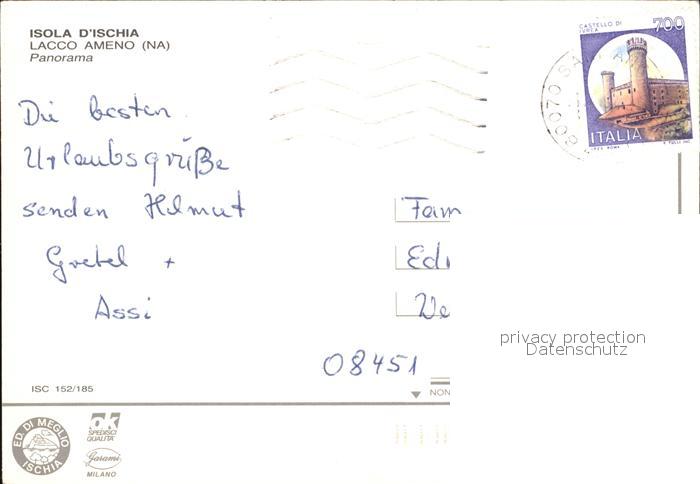 ISOLA D'ISCHIA
LACCO AMENO (NA)
Panorama
CASTELLO DI
IVREA
700
ITALIA
80070 SA
Die besten
Urlaubsgrüße
senden Helmut
Gretel +
Assi
Fam
Edi
We
08451
privacy protection
Datenschutz
ISC 152/185
NON
ED. DI MEGLIO
ISCHIA
OK
SPEDISCI
QUALITÀ
Garami
MILANO